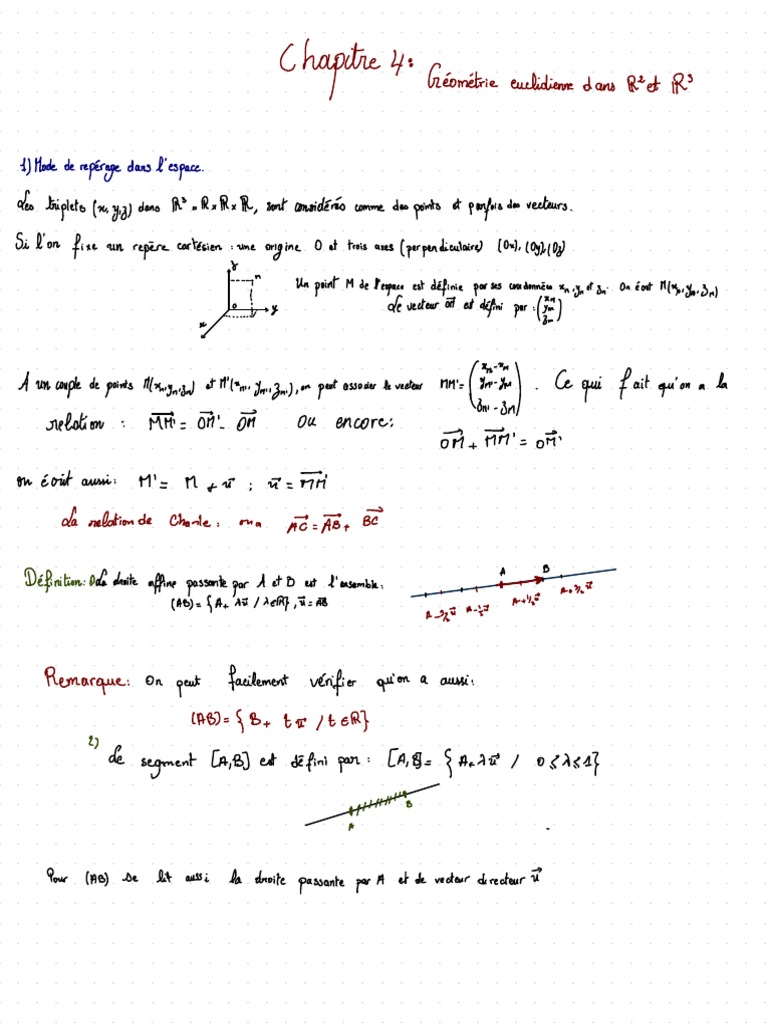 Chapitre 4: Géométrie euclidienne dans R² et R³
1) Mode de repérage dans l'espace.
Les triplets (x, y, z) dans R³ = R x R x R, sont considérés comme des points et parfois des vecteurs.
Si l'on fixe un repère cartésien : une origine O et trois axes (perpendiculaire) (Ox), (Oy), (Oz)
z
M
O
y
x
Un point M de l'espace est définie par ses coordonnées x_M, y_M et z_M. On écrit M(x_M, y_M, z_M)
Le vecteur OM⃗ est défini par : (x_M y_M z_M)
A un couple de points M(x_M, y_M, z_M) et M'(x_M', y_M', z_M'), on peut associer le vecteur MM' = (x_M' - x_M y_M' - y_M z_M' - z_M). Ce qui fait qu'on a la
relation : MM'⃗ = OM'⃗ - OM⃗ Ou encore:
OM⃗ + MM'⃗ = OM'⃗
on écrit aussi: M' = M + u⃗ ; u⃗ = MM'⃗
La relation de Charle : on a AC⃗ = AB⃗ + BC⃗
Définition: 1) La droite affine passante par A et B est l'ensemble:
(AB) = {A + λu⃗ / λ ∈ R}, u⃗ = AB⃗
A B
A - 3/2 u⃗ A - 1/2 u⃗ A + 1/2 u⃗ A + 3/2 u⃗
Remarque: On peut facilement vérifier qu'on a aussi:
(AB) = { B + t u⃗ / t ∈ R}
2) Le segment [A,B] est défini par : [A,B] = { A + λu⃗ / 0 ≤ λ ≤ 1}
A B
Pour (AB) se lit aussi la droite passante par A et de vecteur directeur u⃗